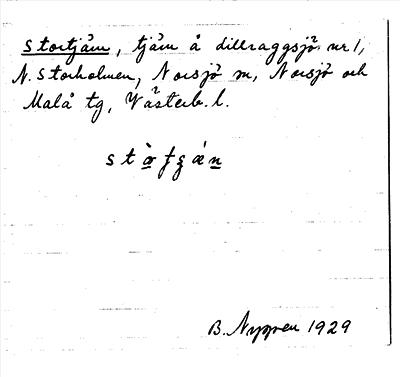 Stortjärn, tjärn å dillraggsjö nr 1,
N. Storholmen, Norsjö sn, Norsjö och
Malå tg, Västerb. l.
B. Nygren 1929